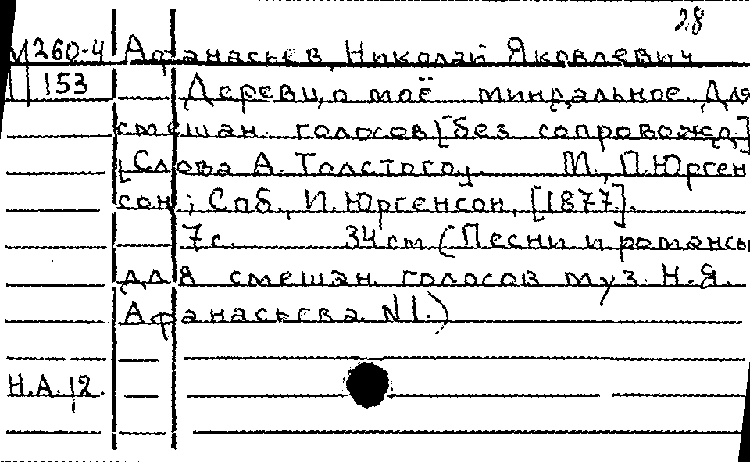 28
М260-4 Афанасьев, Николай Яковлевич
153 Деревцо моё миндальное. Для
смешан. голосов [без сопровожд.]
[Слова А. Толстого]. М., П. Юрген
сон; Спб., И. Юргенсон, [1877].
7 с. 34 см (Песни и романсы
для смешан. голосов муз. Н.Я.
Афанасьева N1.)
Н.А. 12.